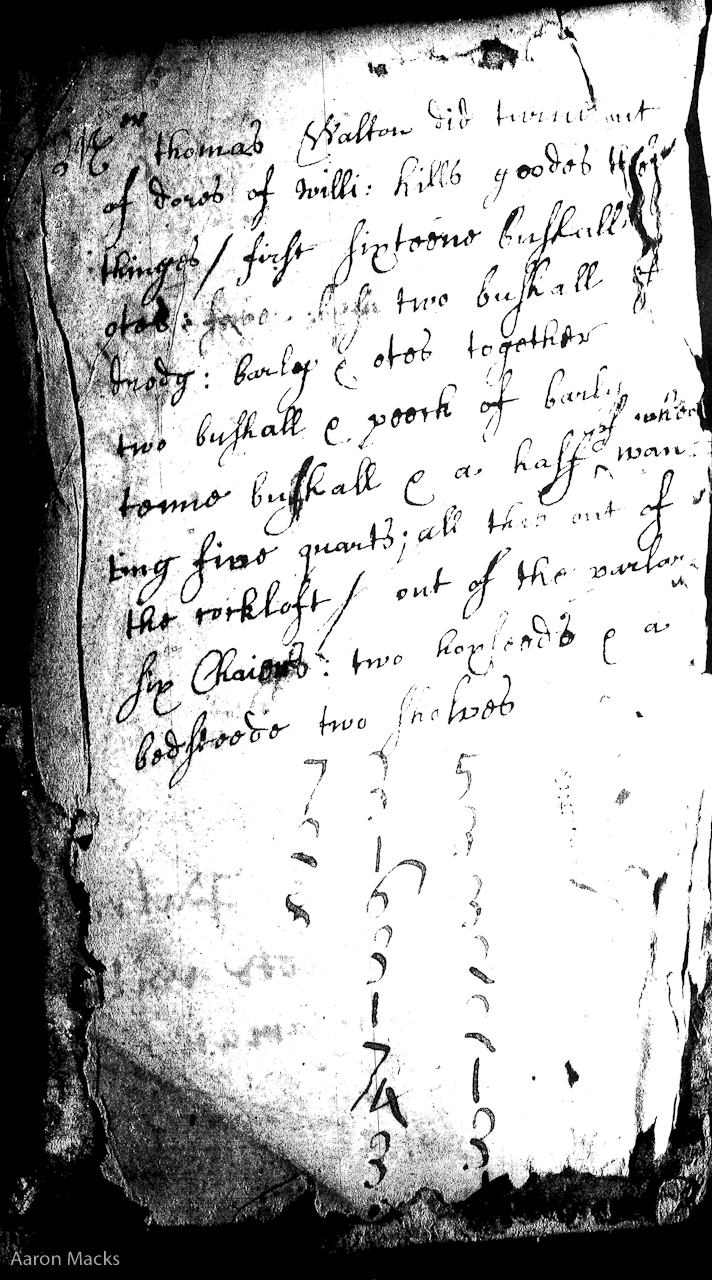 thomas Walton did turne out
of dores of willi: hills goodes thes
thinges / first sixteene bushall
otes: two bushall
dredg: barley & otes together
two bushall & peeck of barly
tenne bushall & a half of whea
wan
ting five quarts; all this out of
the corkloft / out of the parlor
six Chaiers: two hogseeds & a
bedsteede two shelves
7 3 5
2 1 3
6 3
3
1
7 1
4
3 3
Aaron Macks